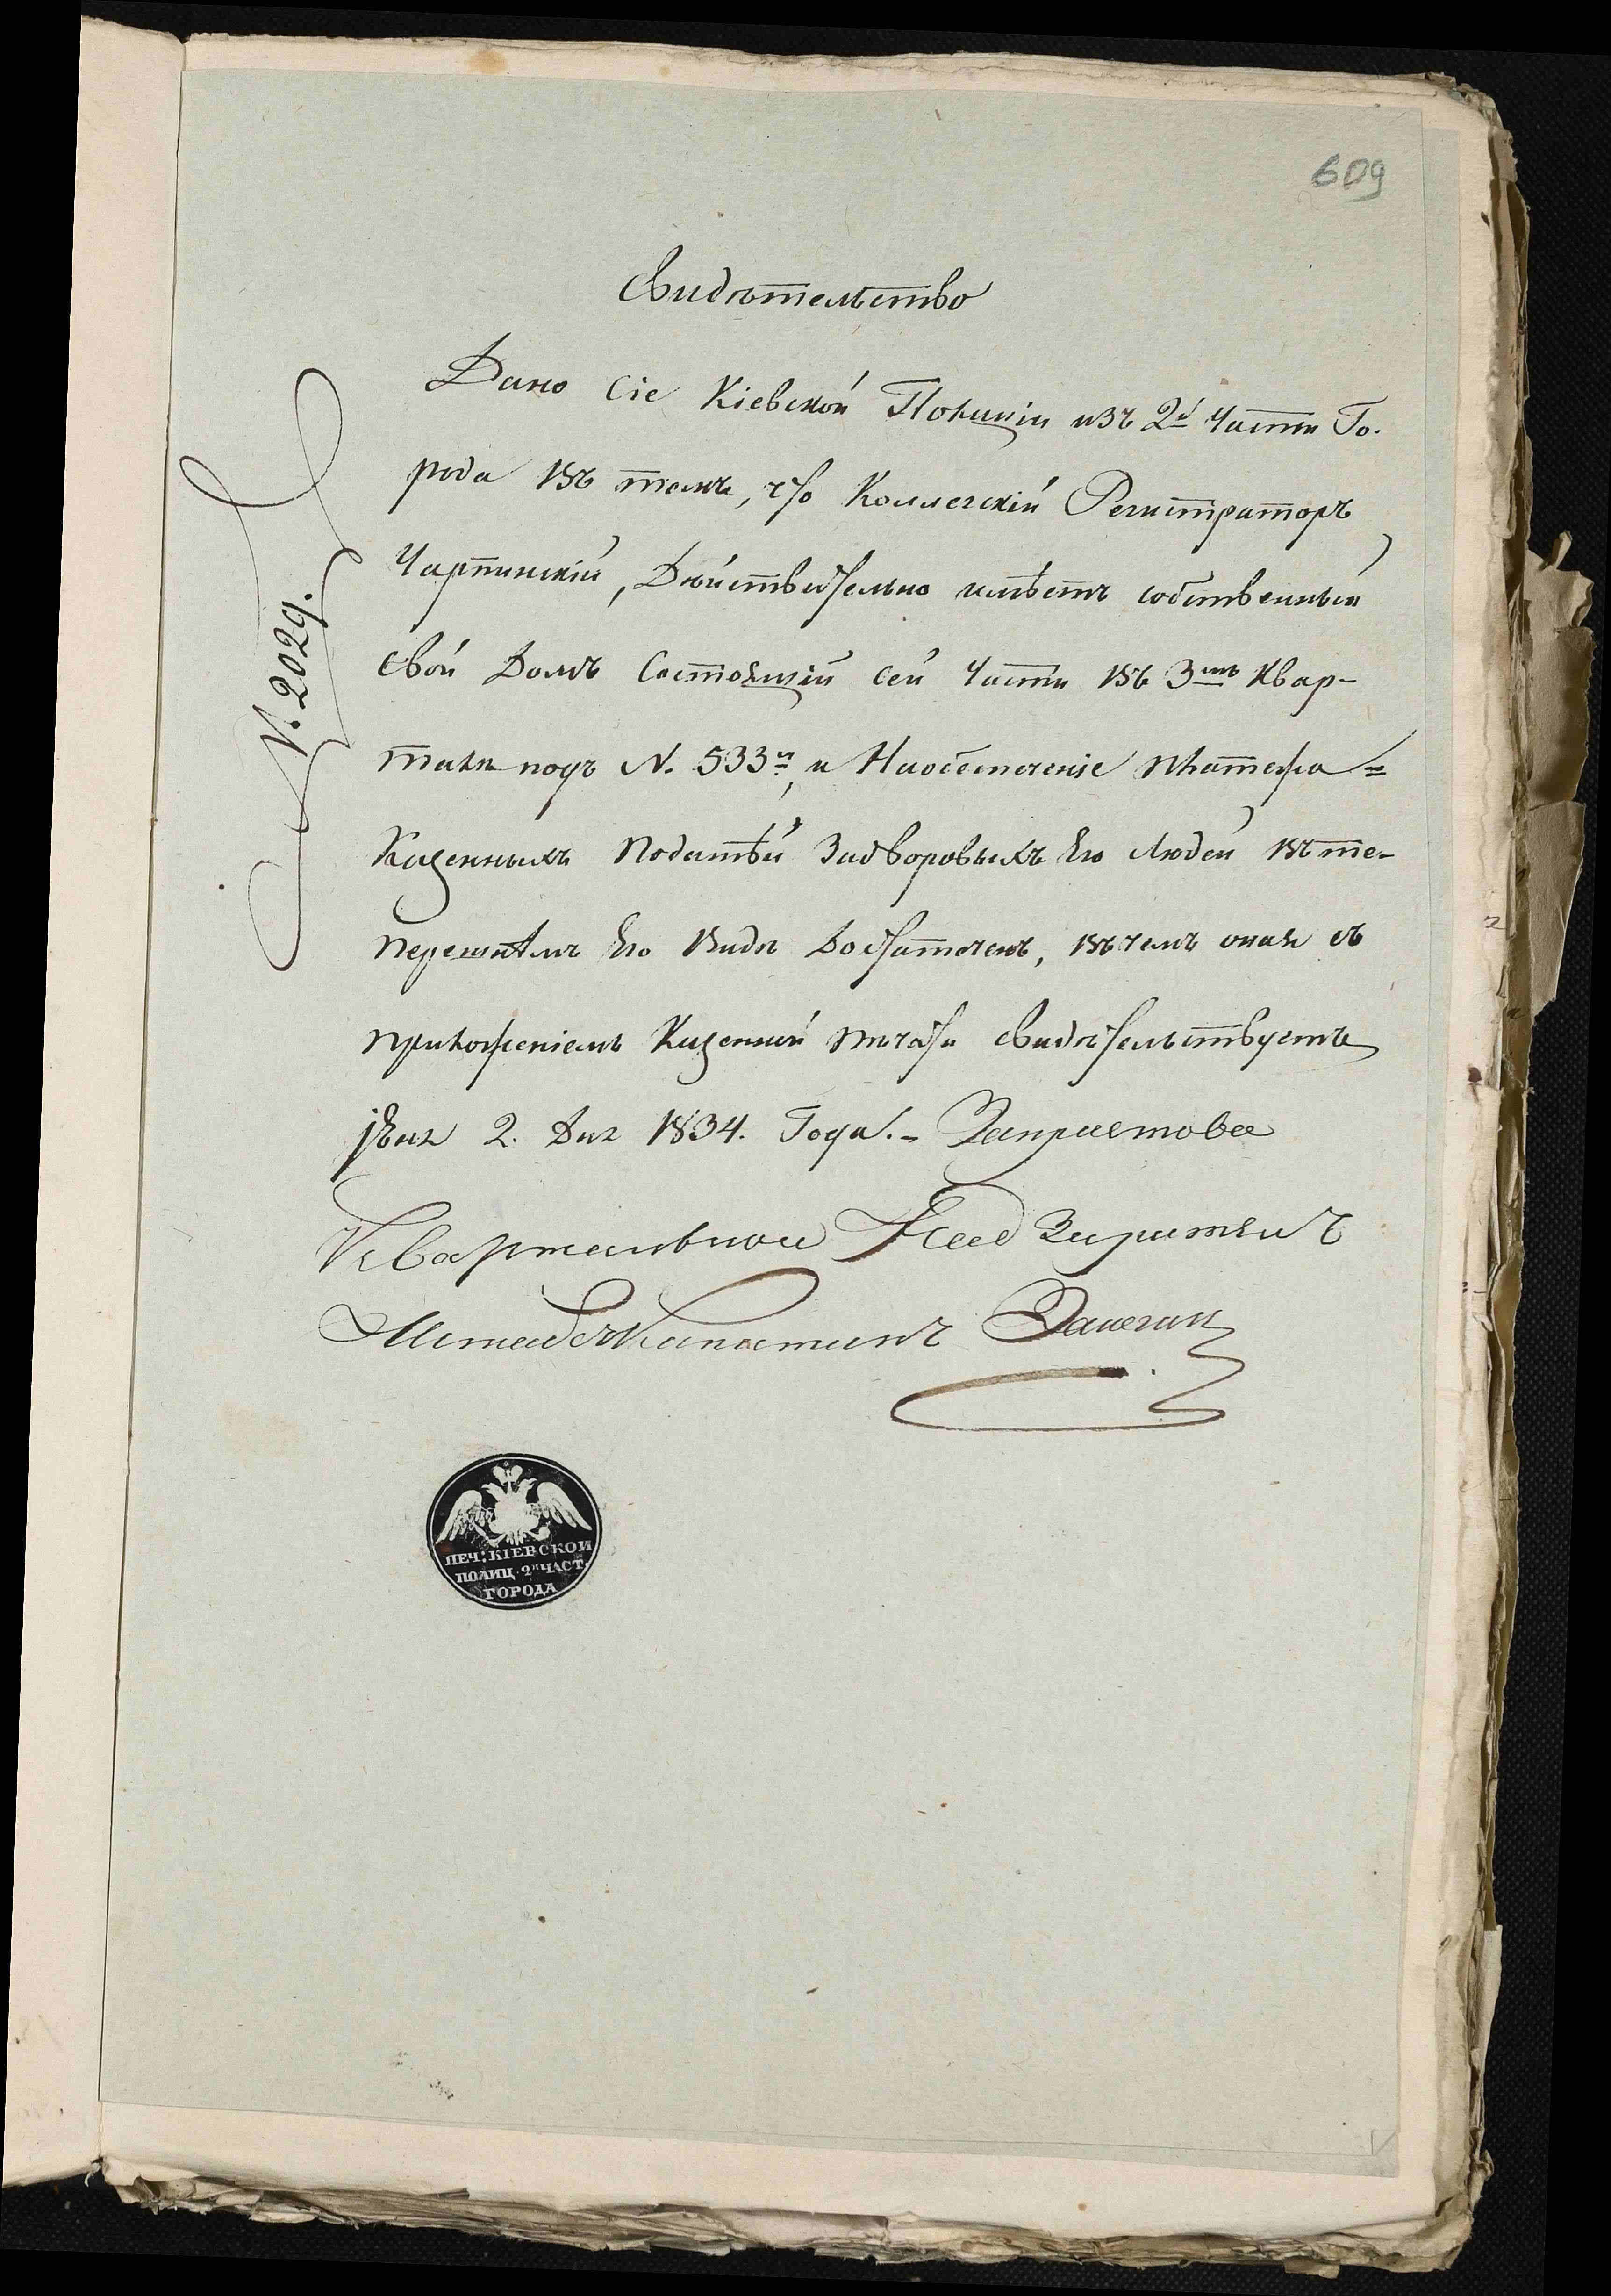 609
Свидѣтельство
Дано Сіе Кіевской Полиціи изъ 2й Части Го-
рода въ томъ, что Коллегскій Регистраторъ
Чарпинскій, Дѣйствительно имѣетъ собственный
свой Домъ Состоящій сей Части въ 3мъ Квар-
талѣ подъ N. 533й, и На обезпеченіе платежа
Казенныхъ Податѣй За дворовыхъ Его Людей въ те-
перешнѣмъ Его Видѣ Достаточенъ, въ чемъ оная съ
приложеніемъ Казенной Печати свидѣтельствуетъ
2. Дня 1834. Года. - За пристава
Квартальной Надзиратель
Штабсъ Капитанъ
N. 2029.
ПЕЧ: КІЕВСКОЙ
ПОЛИЦ. 2й ЧАСТ.
ГОРОДА